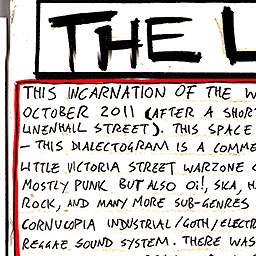 THE L
THIS INCARNATION OF THE W
OCTOBER 2011 (AFTER A SHORT
LINENHALL STREET). THIS SPACE
- THIS DIALECTOGRAM IS A COMME
LITTLE VICTORIA STREET WARZONE C
MOSTLY PUNK BUT ALSO OI!, SKA, H
ROCK, AND MANY MORE SUB-GENRES
CORNUCOPIA INDUSTRIAL/GOTH/ELECTR
REGGAE SOUND SYSTEM. THERE WAS